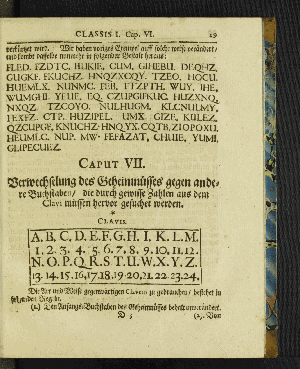 CLASSIS I. Cap. VI. 29
verkürtzt wird. Wir haben voriges Exempel auff solche weise verändert/
und kombt dasselbe nunmehr in folgender Gestalt heraus:
FLED. FZDTC. HUKIF. CUM, GIHEBU. DEQHZ,
GUIGKF. EKUCHZ. HNQZXCQY. TZEO, HOCU.
HUEMLX. NUNMC. PBI, TTZPTH, WUY, IHE,
WUMGHI. YEUE, EQ. CZUPGHKUC. HUZXNQ,
NXQZ. TZCOYO. NULHUGM. KLCNULMY,
FEXFZ. CTP. HUZIPEL. UMX. GIZE, KULEZ.
QZCUPGE, KNUCHZ-HNQYX. CQTB, ZIOPOXU,
HEUMLC. NUP. MW. FEFAZAT, CHUIE, YUMI,
GLIPECUEZ.
CAPUT VII.
Verwechselung des Geheimnüsses gegen ande-
re Buchstaben/ die durch gewisse Zahlen aus dem
Clavi müssen hervor gesuchet werden.
*
CLAVIS.
A, B, C, D, E, F, G, H, I, K, L, M,
1. 2. 3. 4. 5. 6. 7. 8. 9. 10. 11. 12.
N. O. P. Q. R. S. T. U. W. X. Y. Z.
13. 14. 15. 16. 17. 18. 19. 20. 21. 22. 23. 24.
Die Art und Weise gegenwärtigen Clavem zu gebrauchen/ bestehet in
folgenden Regeln.
(1.) Den Anfangs-Buchstaben des Geheimnüsses behelt unverändert.
D 5 (2.) Von